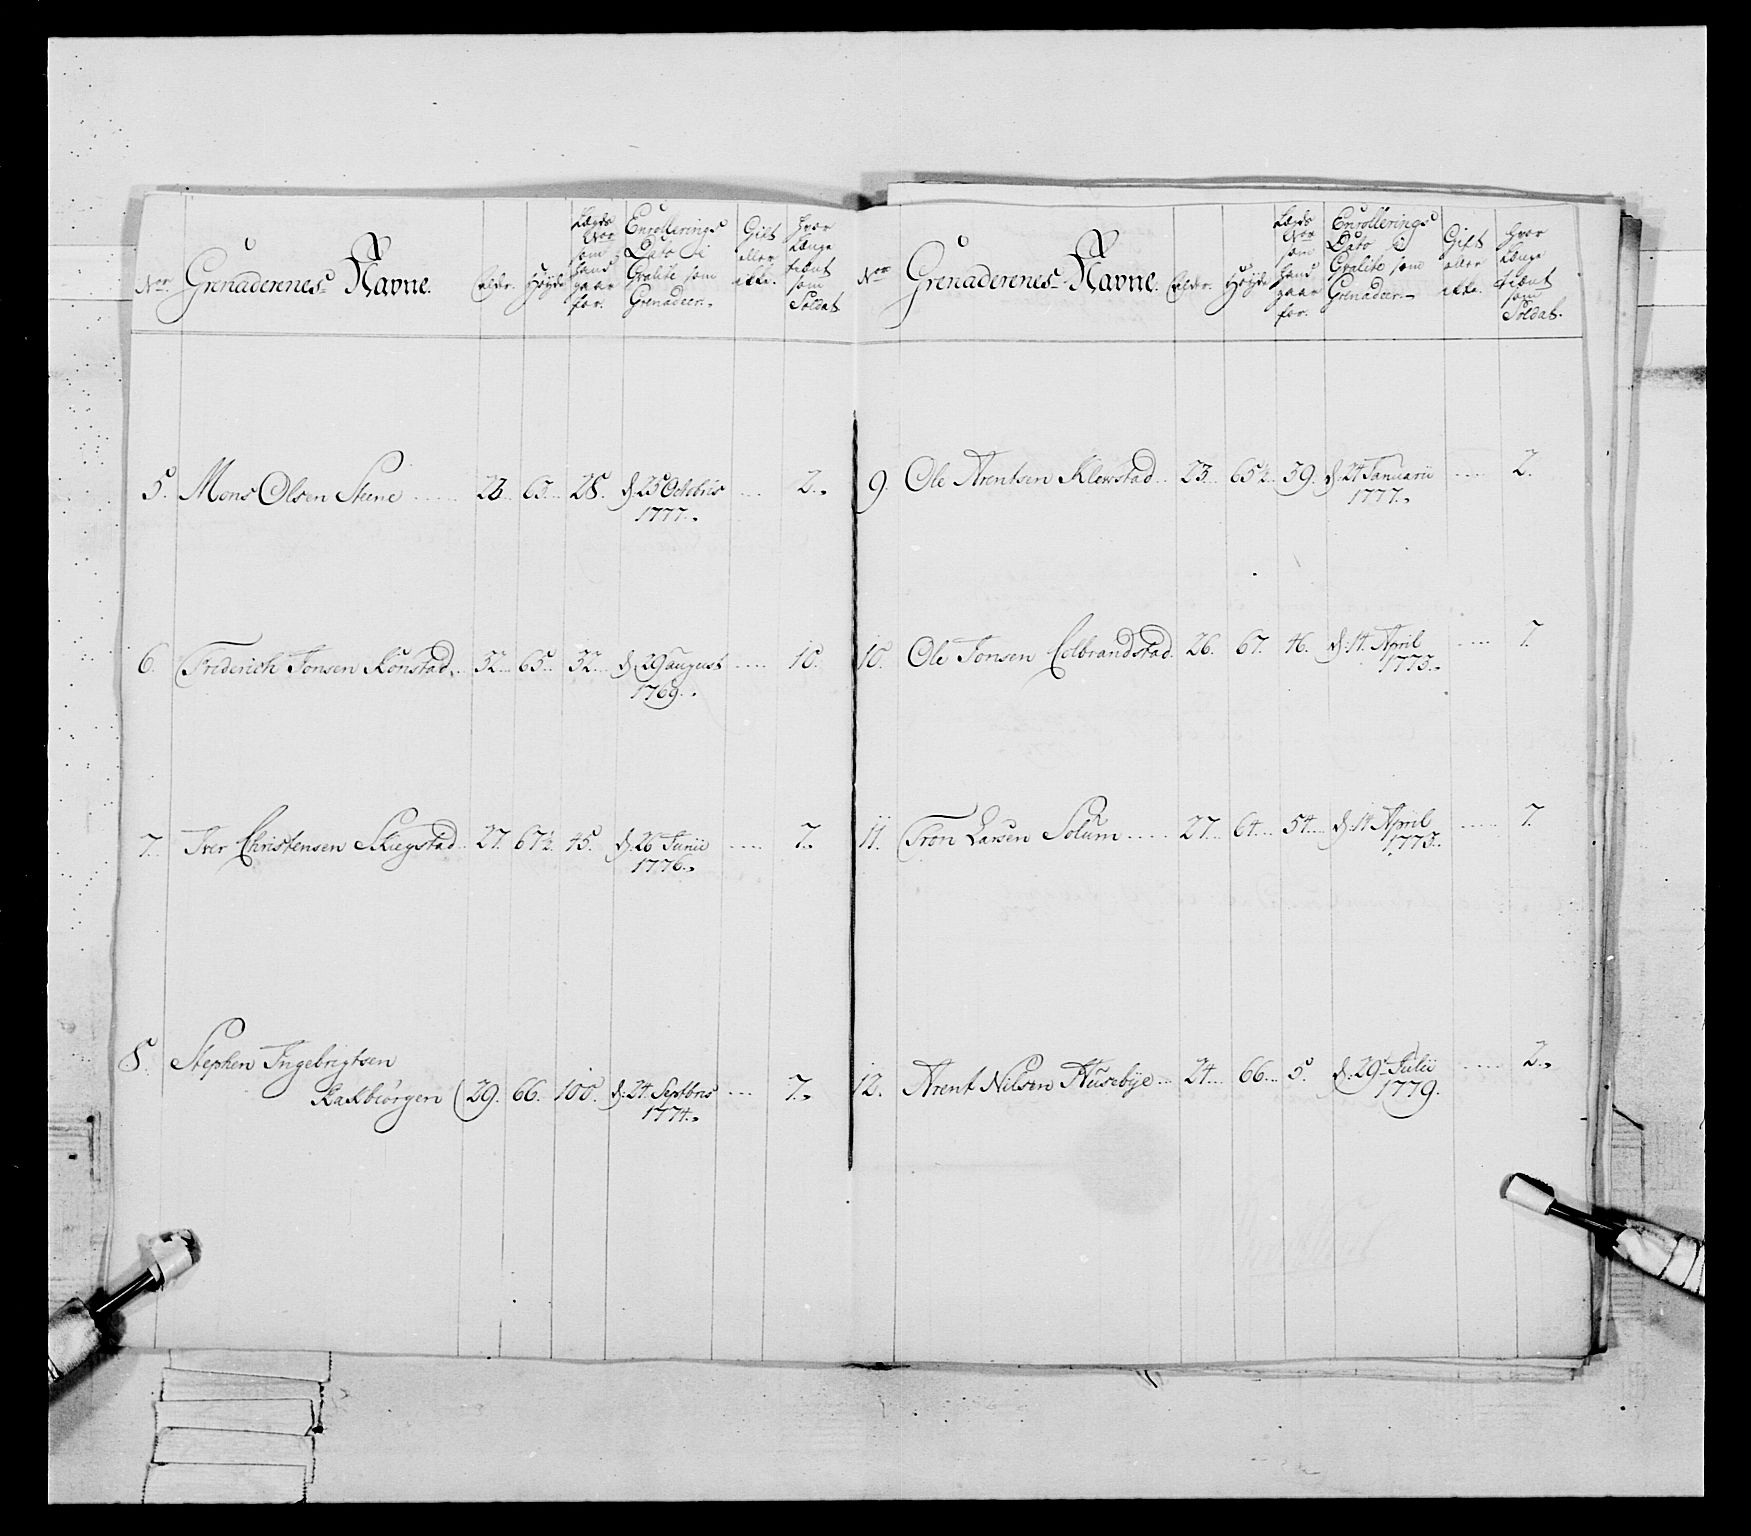 Nor Grenaderenes Navne. Alder. Høyde Lægds Nor som hand gaar for. Enrollerings Dato i Qvalite som Grenadeer. Gift eller ikke. Hvor Længe tiænt som Soldat
5. Mons Olsen Steene ...... 28. 65. 28. d: 25 Octobris .... 2.
1777.
6. Friderich Jonsen Konstad. 32. 65. 32. d: 29 August .... 10.
1769.
7. Iver Christensen Skiegstad. 27. 67½. 45. d: 26 Junii .... 7.
1776.
8. Stephen Ingebrigtsen
Bakbiørgen 29. 66. 100. d: 24. Septbris .... 7.
1774.
Nor Grenaderenes Navne. Alder. Høyde Lægds Nor som hand gaar for. Enrollerings Dato i Qvalite som Grenadeer. Gift eller ikke. Hvor Længe tiænt som Soldat.
9. Ole Arentsen Klewstad. 23. 65½. 39. d: 24 Januarii .... 2.
1777.
10. Ole Jonsen Colbrandstad. 26. 67. 46. d: 14 April .... 7.
1773.
11. Tron Larsen Solum ..... 27. 64. 54. d: 14 April .... 7.
1773.
12. Arent Nilsen Husebÿe ... 24. 66. 5. d: 29 Julii .... 2.
1779.